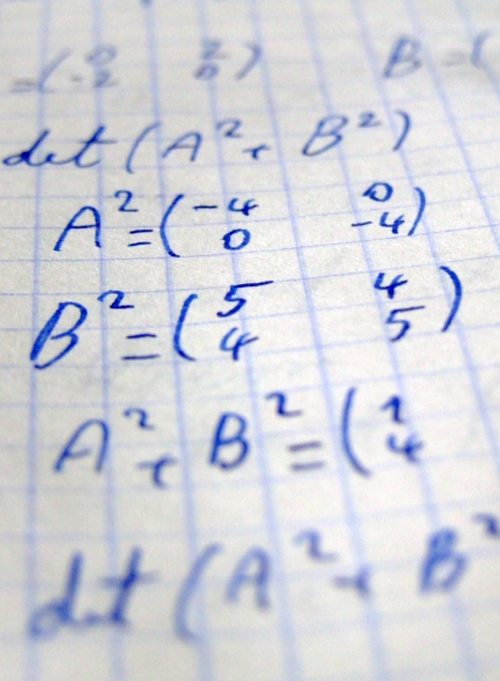 =(0 2 B=(
-2 0)
det(A²+ B²)
A²=(-4 0
0 -4)
B²=(5 4
4 5)
A²+ B²=(1
4
det(A²+ B²